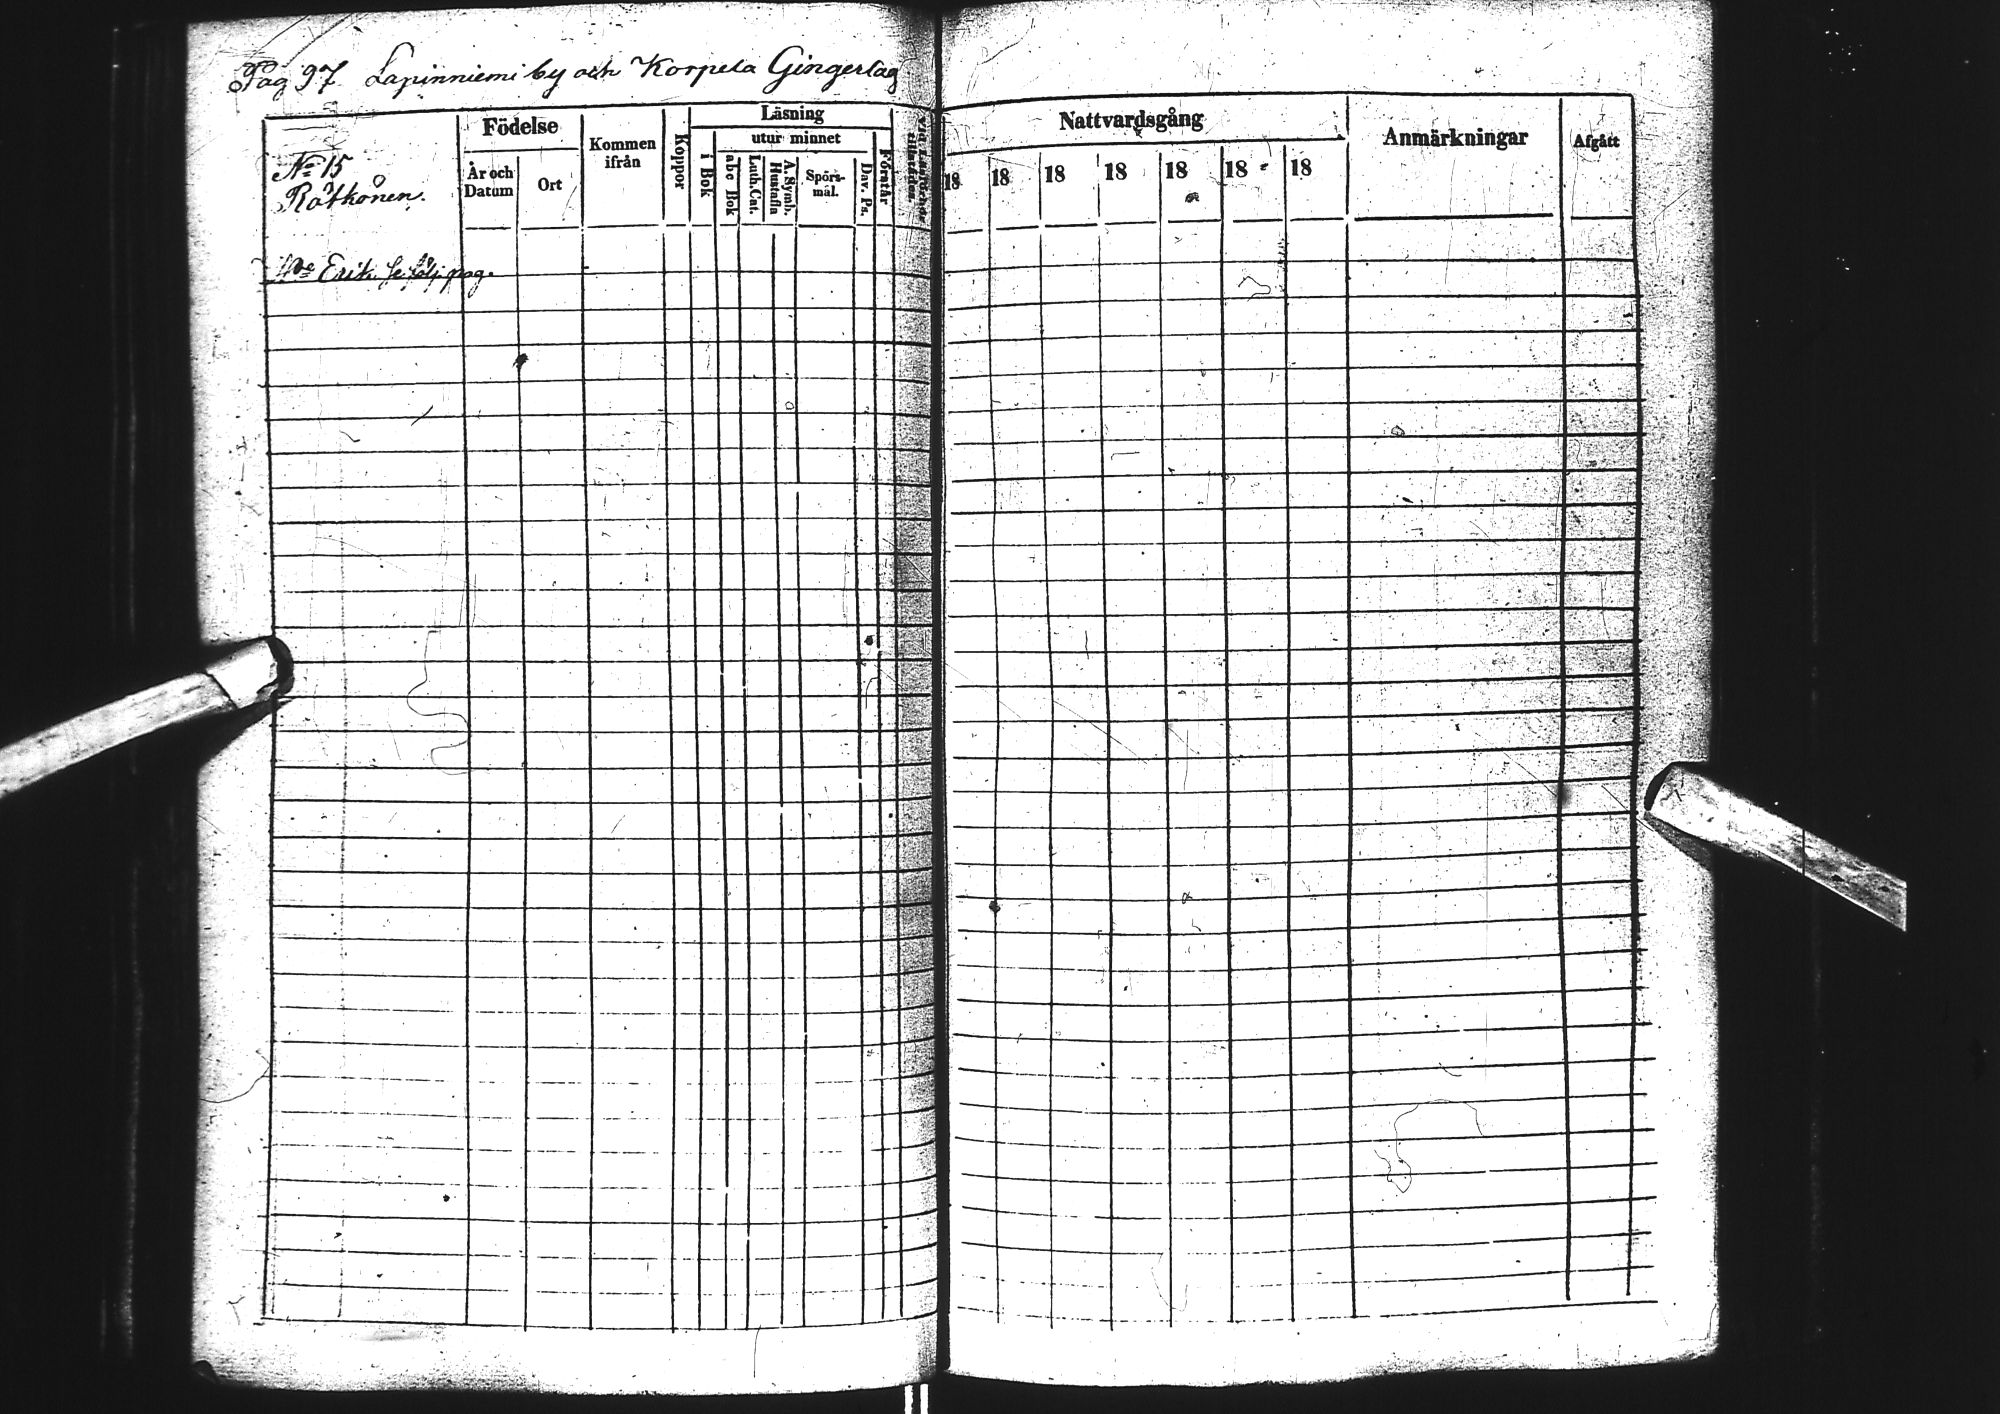 Pag 97. Lapinniemi by och Korpela Gingerlag
Födelse
Läsning
utur minnet
Kommen ifrån
Koppor
i Bok
abc Bok
Luth. Cat.
A. Symb. Hustafla
Spörsmål.
Dav. Ps.
Förstår
År och Datum
Ort
Nattvardsgång
Anmärkningar
Afgått
18 18 18 18 18 18 18
No 15
Rätkönen.
Erik se följ. pag.